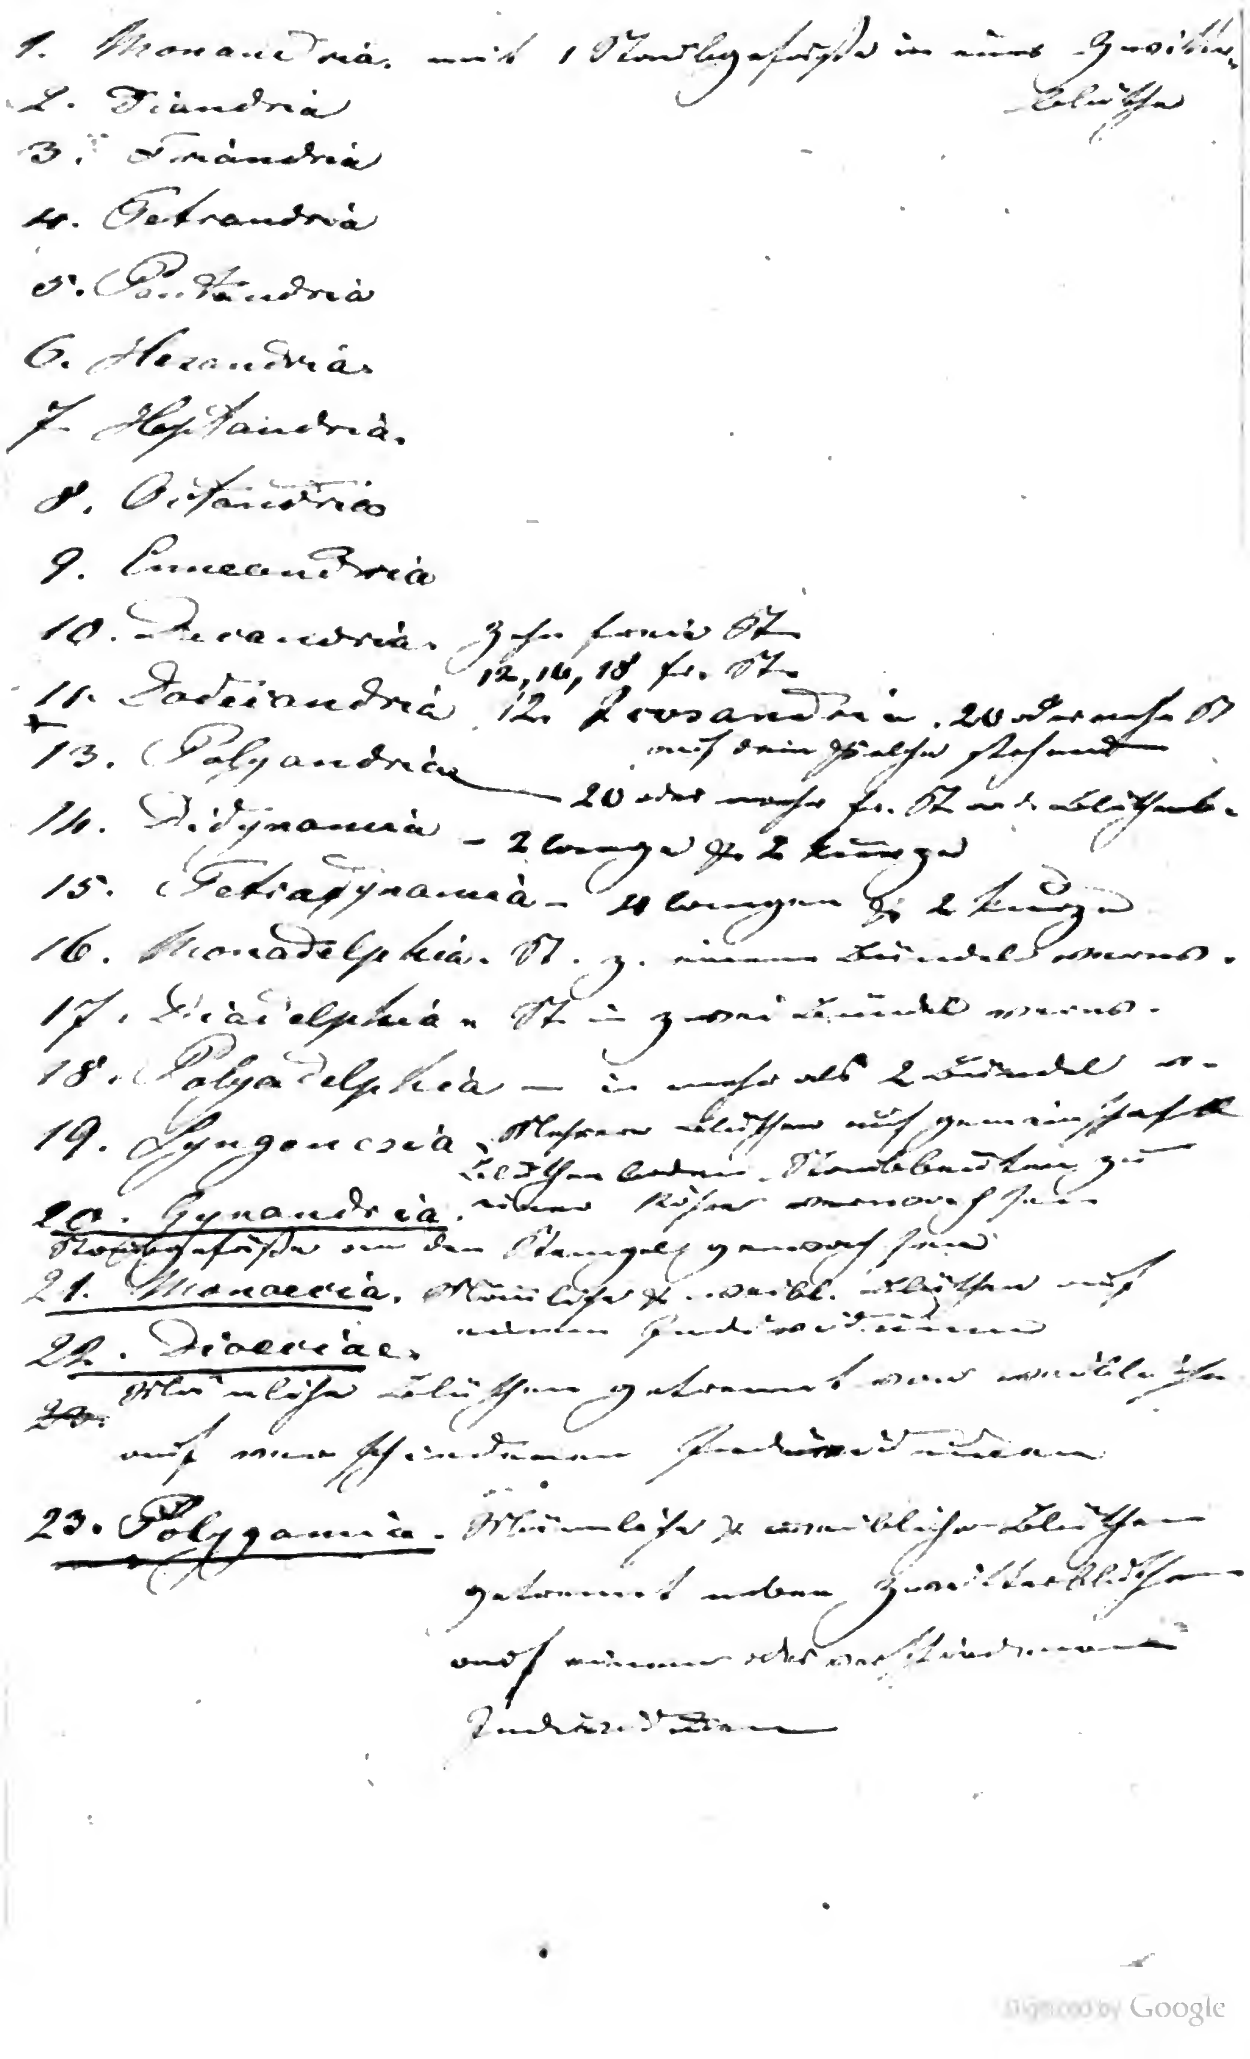 1. Monandria. mit 1 Staubgefaße in einer Zwitter-
blüthe
2. Diandria
3. Triandria
4. Tetrandria
5. Pentandria
6. Hexandria.
7. Heptandria.
8. Octandria
9. Enneandria
10. Decandria. Zehn freie St.
12, 16, 18 fr. St.
11. Dodecandria 12. Icosandria. 20 oder mehr St
auf dem Kelche stehend
13. Polyandria — 20 oder mehr fr. St a. d. Blüthenb.
14. Didynamia – 2 lange & 2 kurze
15. Tetradynamia – 4 langen & 2 kurze
16. Monadelphia. St. z. einem Bündel verw.
17. Diadelphia. St. in zwei Bündel verw.
18. Polyadelphia — in mehr als 2 Bündel v.
19. Syngenesia. Mehrere Blüthen auf gemeinschaftl
Blüthenboden. Staubbeuteln zu
einer Röhre verwachsen
20. Gynandria.
Staubgefäße an den Stempel gewachsen
21. Monoecia. Mänliche & weibl. Blüthen auf
einem Individuum
22. Dioeciae.
Mänliche Blüthen getrennt von weiblichen
auf verschiedenen Individuen
23. Polygamia. Männliche & weibliche Blüthen
getrennt neben Zwitterblüthen
auf einem oder verschiedenen
Individuen
Digitized by Google